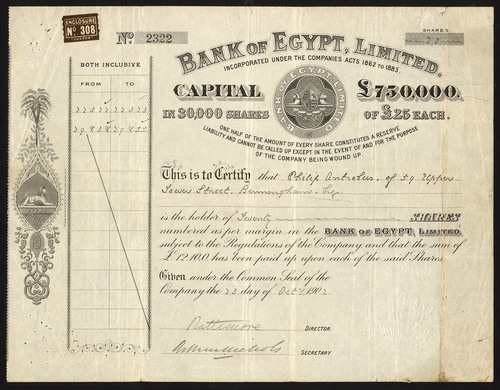 ENCLOSURE
Nº 308
Nº 2322
SHARES
BANK OF EGYPT, LIMITED.
INCORPORATED UNDER THE COMPANIES ACTS 1862 TO 1883.
BOTH INCLUSIVE
FROM TO
CAPITAL £750,000.
IN 30,000 SHARES OF £25 EACH.
BANK OF EGYPT LIMITED
ONE HALF OF THE AMOUNT OF EVERY SHARE CONSTITUTES A RESERVE
LIABILITY AND CANNOT BE CALLED UP EXCEPT IN THE EVENT OF AND FOR THE PURPOSE
OF THE COMPANY BEING WOUND UP.
This is to Certify that Philip Antrobus, of 59 Upper
Tower Street, Birmingham
is the holder of Twenty SHARES
numbered as per margin in the BANK OF EGYPT, LIMITED
subject to the Regulations of the Company and that the sum of
£12.10.0 has been paid up upon each of the said Shares.
Given under the Common Seal of the
Company the 23 day of Oct 1902
DIRECTOR
Arthur Nichols SECRETARY